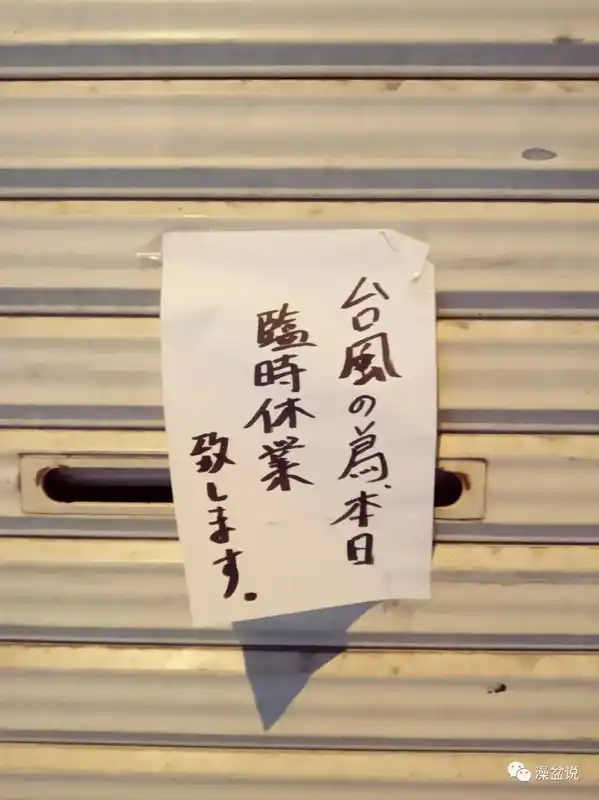 台風の為、本日
臨時休業
致します。
澡盆说